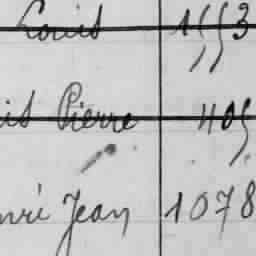 Louis 1553
is Pierre 405
nri Jean 1078